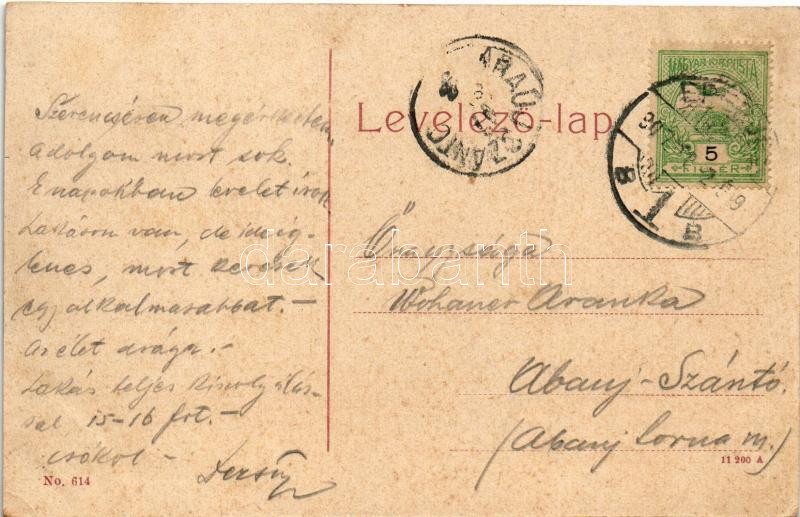 Szerencsésen megérkeztem,
a dolgom most sok.
E napokban levelet írok
Lakásom van, de ideig-
lenes, most keresek
egy alkalmasabbat. -
Az élet drága. -
Lakás teljes kiszolgálás-
sal 15-16 frt. -
csókol -
No. 614
ABAUJ-SZÁNTÓ
Levelező-lap
MAGYAR KIR. POSTA
5
FILLÉR
B
B
Őnagysága
Wohaner Aranka
Abauj-Szántó.
(Abauj Torna m.)
11200 A
darabanth